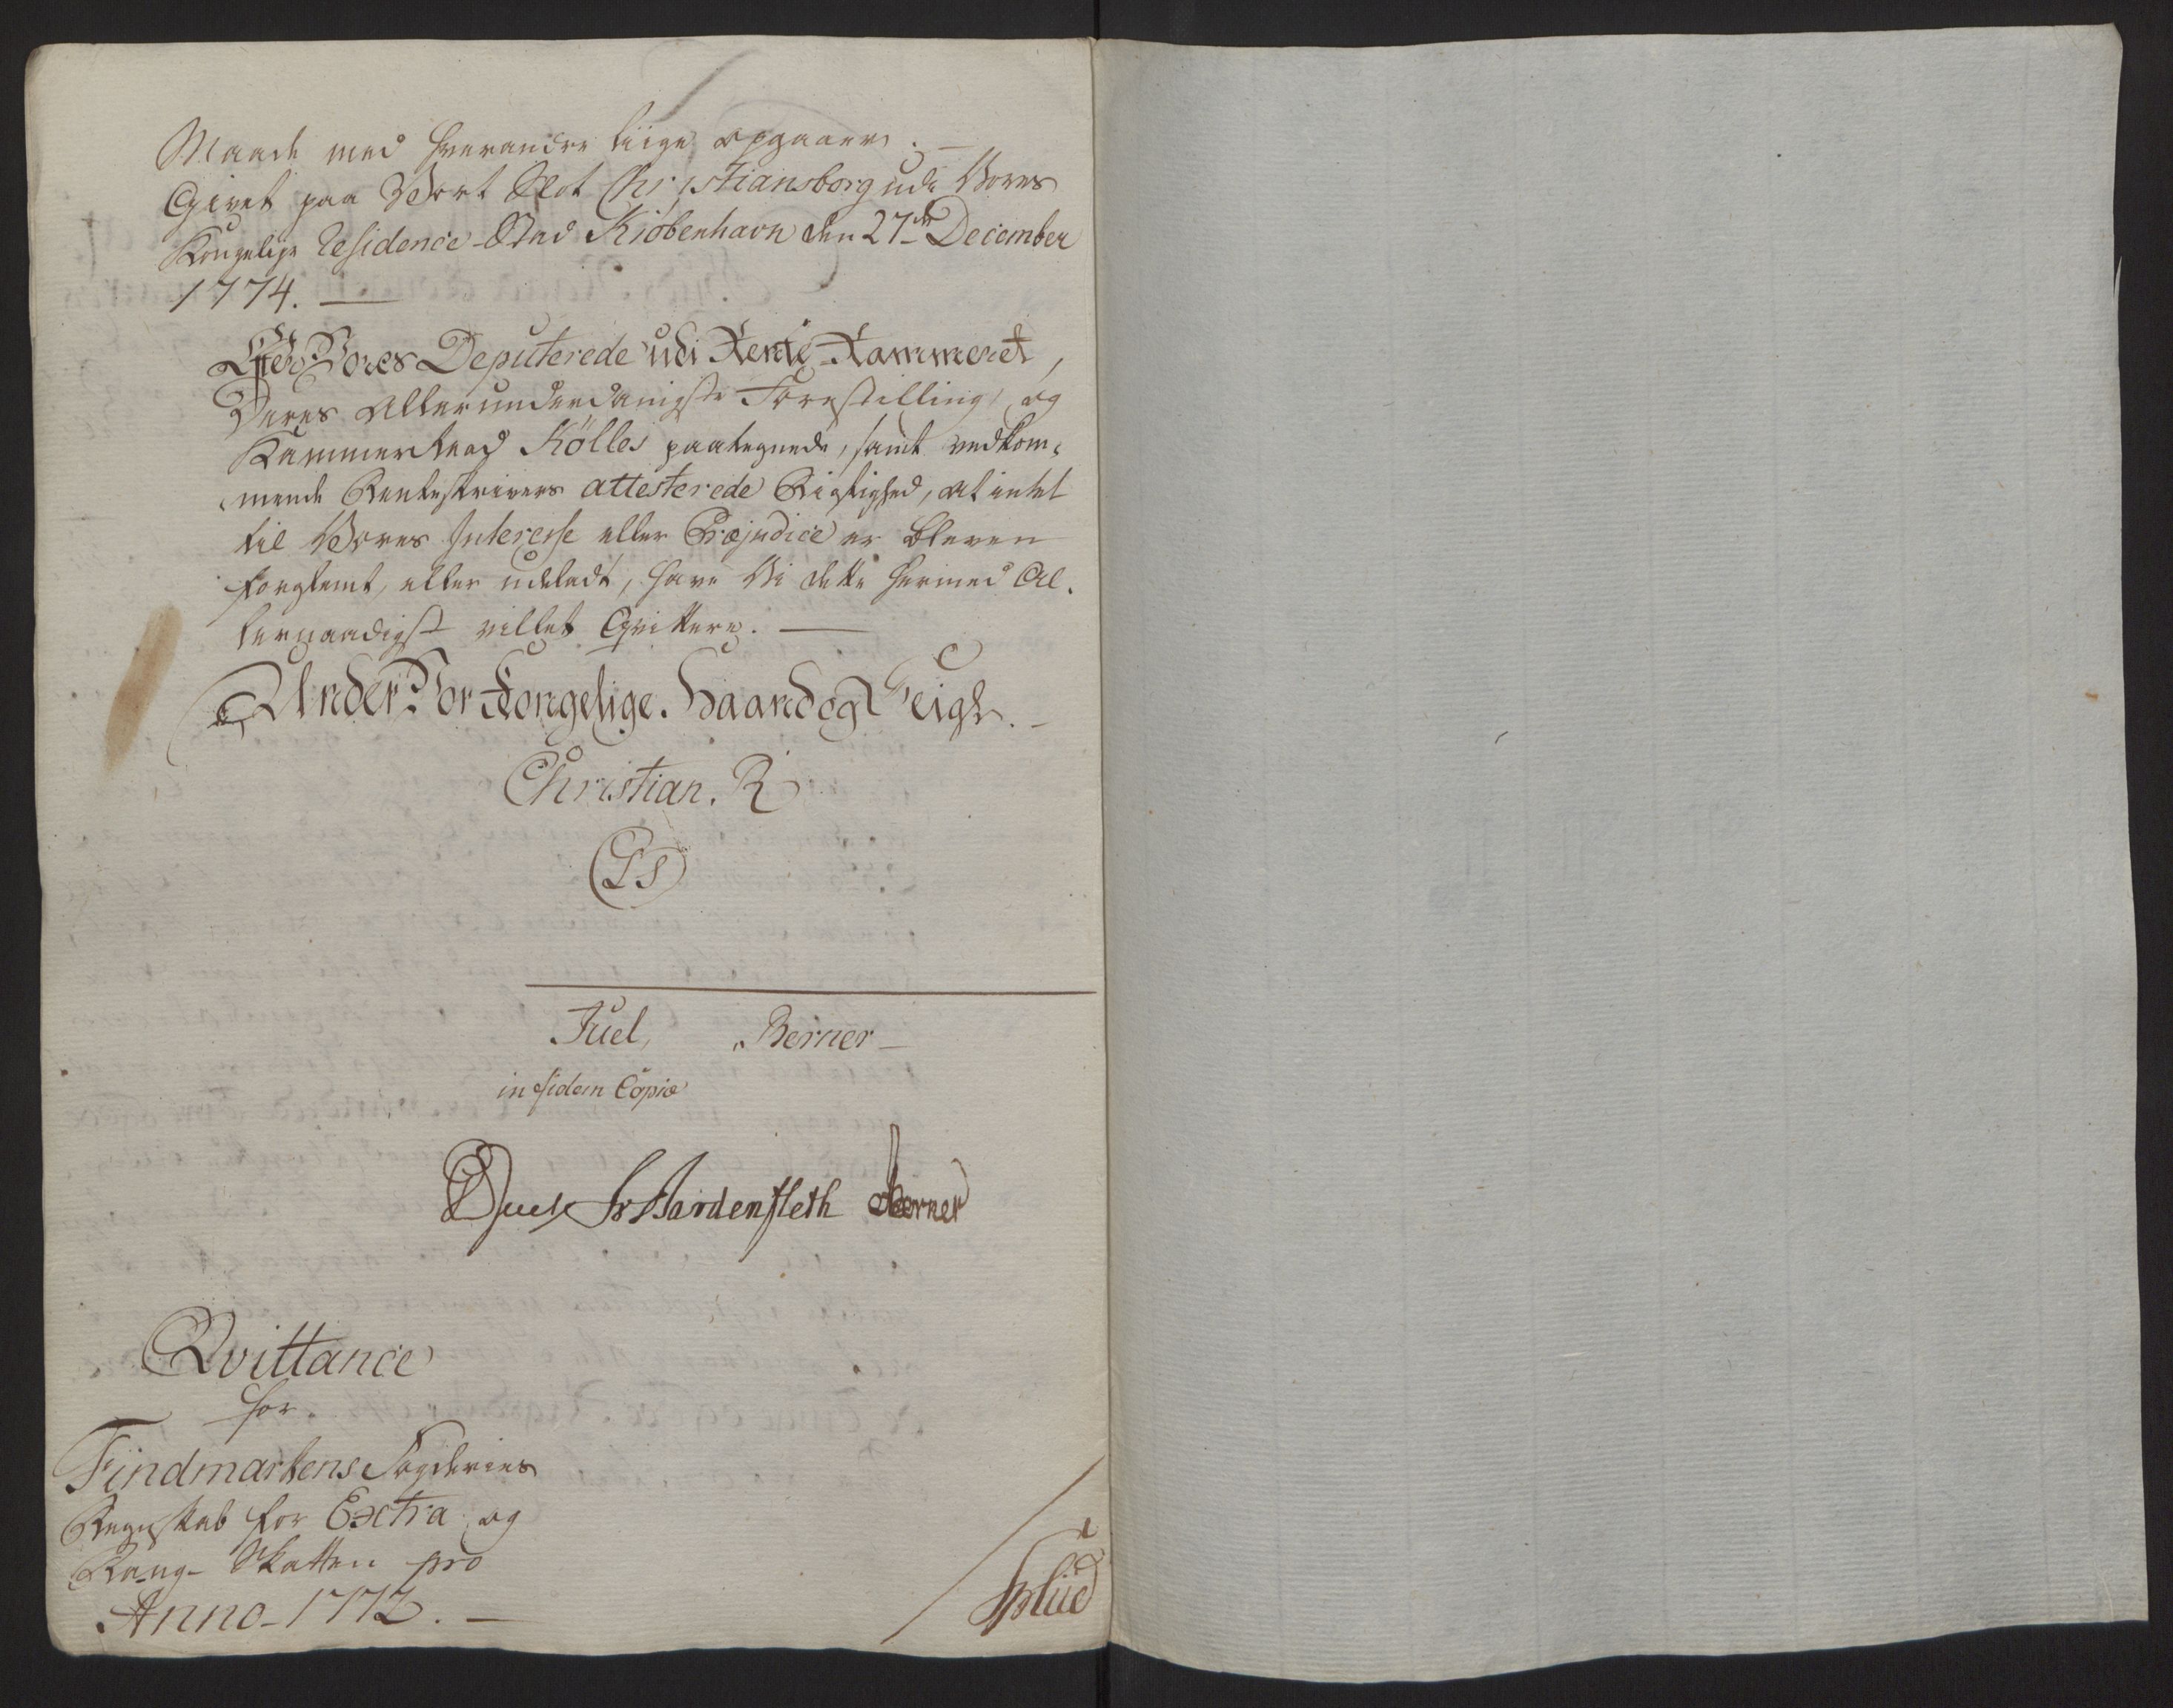 Maade med hverandre liige opgaaer. —
Givet paa Vort Slot Christiansborg udi Vores
Kongelige Residence-Stad Kiøbenhavn den 27de December
1774. —
Efter Vores Deputerede udi Rente-Kammeret,
Deres Allerunderdanigste Forestilling, og
Kammerraad Kölles paategnede, samt vedkom-
mende Renteskrivers attesterede Rigtighed, at intet
til Vores Interesse eller Præjudice er bleven
forglemt, eller udeladt, have Vi dette hermed Al-
lernaadigst villet Qvittere. —
Under Vor Kongelige Haand og Seigl. —
Christian. R
LS
Juel, Berner —
in fidem Copiæ
Juel Hardenfleth Berner
Qvittance
for
Findmarkens Fogderies
Regnskab for Extra og
Rang-Skatten pro
Anno 1772. —